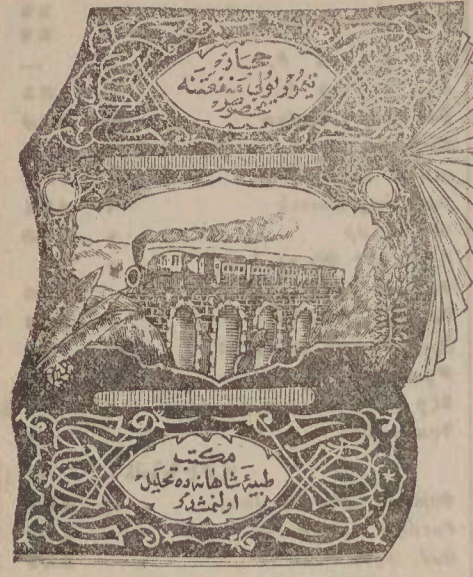 حجاز
تیمور یولی منفعتنه
مخصوصدر
مکتب
طبیهٔ شاهانه ده تحلیل
اولنمشدر